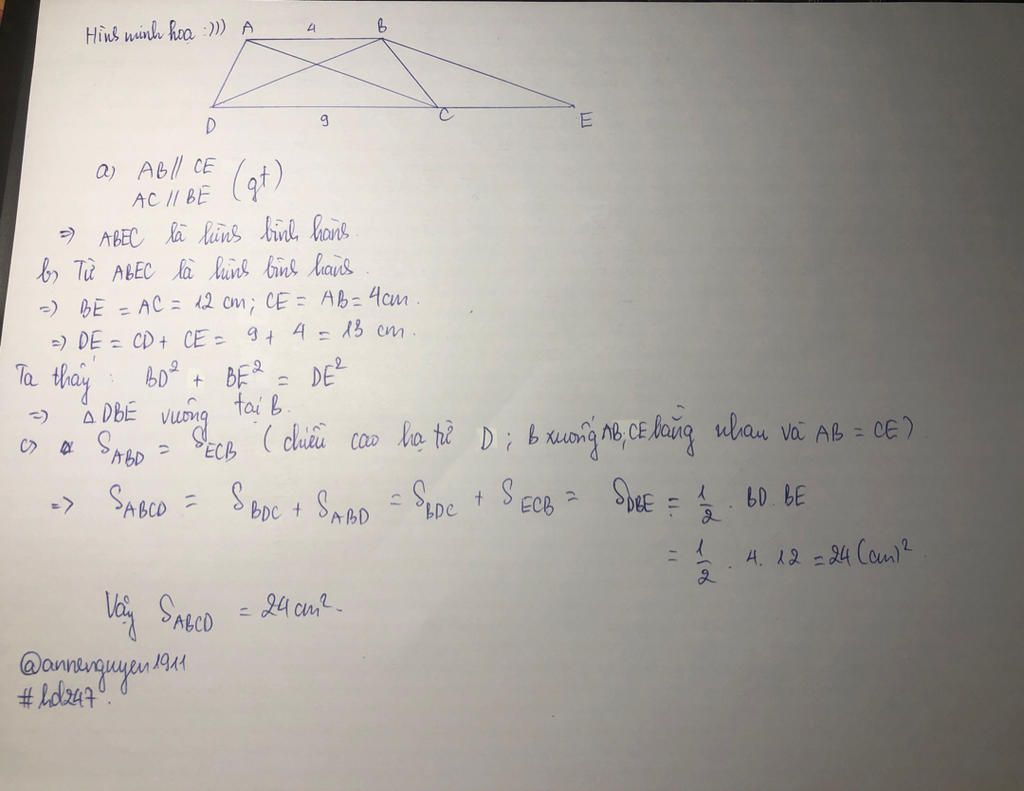 Hình minh hoạ :)))
A 4 B
D 9 C E
a) AB // CE
AC // BE (gt)
=> ABEC là hình bình hành.
b) Từ ABEC là hình bình hành.
=> BE = AC = 12 cm; CE = AB = 4cm.
=> DE = CD + CE = 9 + 4 = 13 cm.
Ta thấy: BD² + BE² = DE²
=> △DBE vuông tại B.
c) S_ABD = S_ECB (chiều cao hạ từ D; B xuống AB, CE bằng nhau và AB = CE)
=> S_ABCD = S_BDC + S_ABD = S_BDC + S_ECB = S_DBE = 1/2 . BD. BE
= 1/2 . 4. 12 = 24 (cm)².
Vậy S_ABCD = 24 cm².
@annenguyen1911
#hd247.